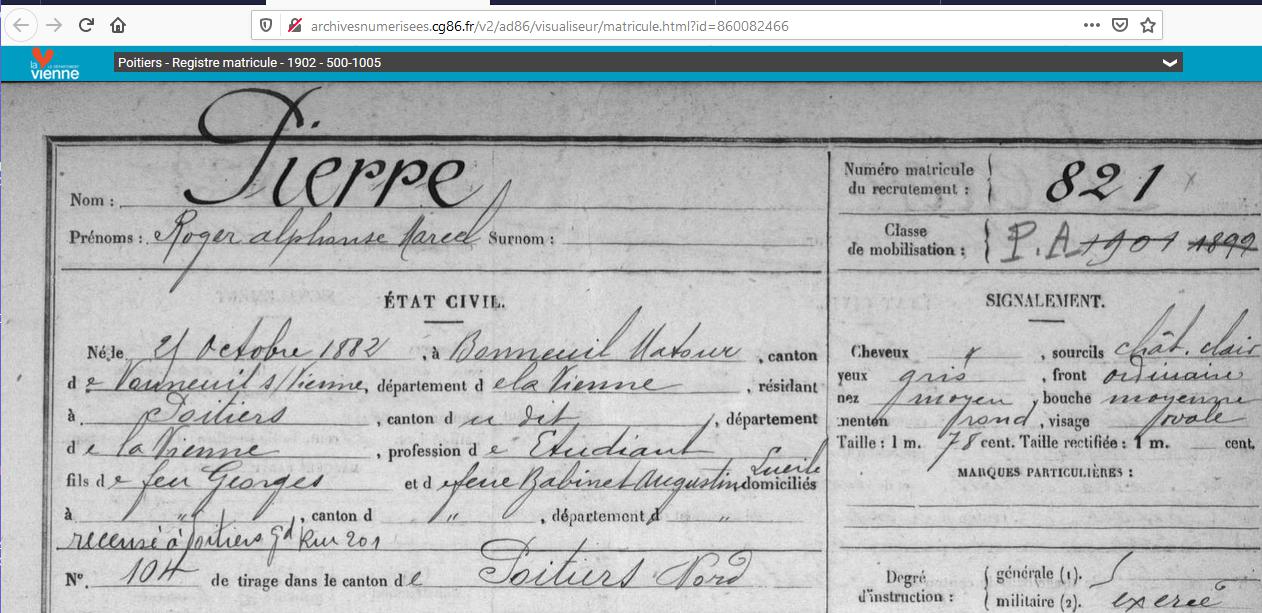 archivesnumerisees.cg86.fr/v2/ad86/visualiseur/matricule.html?id=860082466
la vienne
LE DÉPARTEMENT
Poitiers - Registre matricule - 1902 - 500-1005
Nom : Pierre
Prénoms : Roger alphonse Marcel Surnom :
Numéro matricule du recrutement : 821
Classe de mobilisation : P.A 1901 1899
ÉTAT CIVIL.
Né le 21 Octobre 1882, à Bonneuil Matour, canton
de Vouneuil s/Vienne, département de la Vienne, résidant
à Poitiers, canton du dit, département
de la Vienne, profession d'e Etudiant
fils de feu Georges et de feue Babinet Augustine Lucile domiciliés
à " , canton d " , département d "
recensé à Poitiers gd Rue 201
N°. 104 de tirage dans le canton de Poitiers Nord
SIGNALEMENT.
Cheveux , sourcils chât. clair
yeux gris, front ordinaire
nez moyen, bouche moyenne
menton rond, visage ovale
Taille : 1 m. 78 cent. Taille rectifiée : 1 m. cent.
MARQUES PARTICULIÈRES :
Degré d'instruction :
générale (1).
militaire (2). exercé